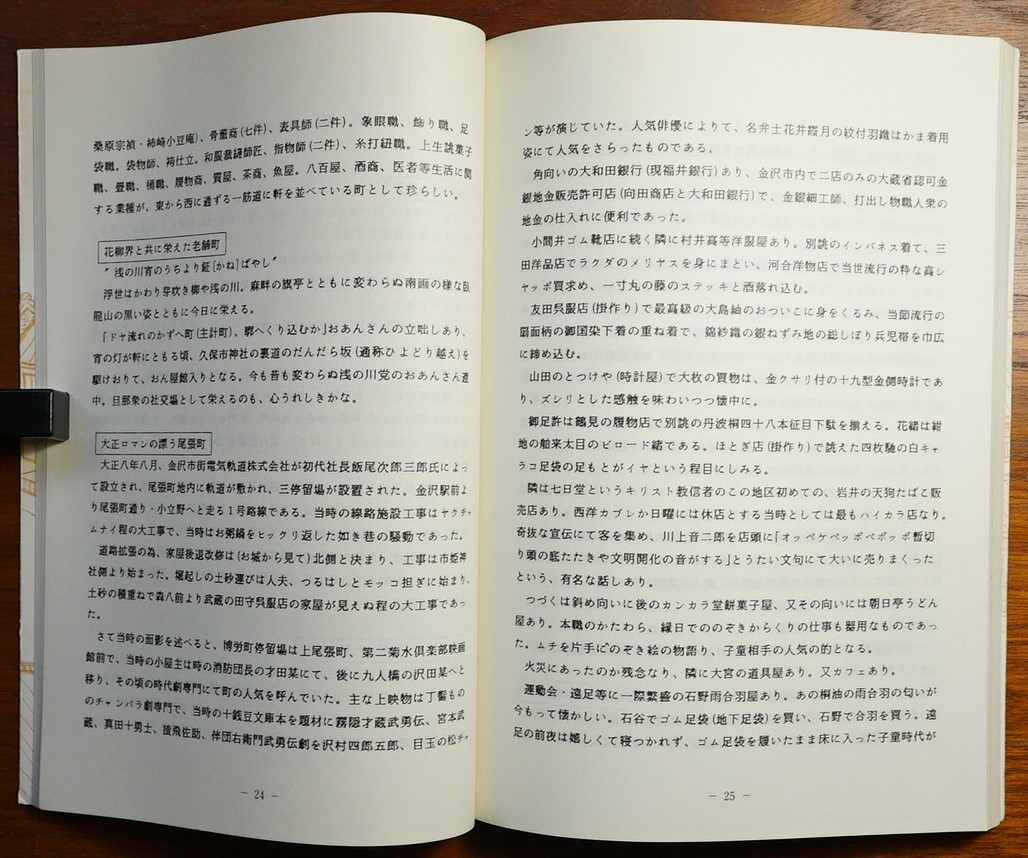 桑原宗禎・柿崎小豆庵)、骨董商(七件)、表具師(二件)。象眼職、飾り職、足
袋職。袋物師、袴仕立。和服裁縫師匠、指物師(二件)、糸打紐職。上生誂菓子
職、畳職、桶職、履物商、質屋、茶商、魚屋。八百屋、酒商、医者等生活に関
する業種が、東から西に通ずる一筋道に軒を並べている町として珍らしい。
花柳界と共に栄えた老舗町
〝浅の川宵のうちより鉦[かね]ばやし〞
浮世はかわり芽吹き柳や浅の川。麻畔の旗亭とともに変わらぬ南画の様な臥
龍山の黒い姿とともに今日に栄える。
「ドヤ流れのかずへ町(主計町)、廓へくり込むか」おあんさんの立咄しあり、
宵の灯が軒にともる頃、久保市神社の裏道のだんだら坂(通称ひよどり越え)を
駆けおりて、おん屋館入りとなる。今も昔も変わらぬ浅の川党のおあんさん連
中。旦那衆の社交場として栄えるのも、心うれしきかな。
大正ロマンの漂う尾張町
大正八年八月、金沢市街電気軌道株式会社が初代社長飯尾次郎三郎氏によっ
て設立され、尾張町地内に軌道が敷かれ、三停留場が設置された。金沢駅前よ
り尾張町通り・小立野へと走る1号路線である。当時の線路施設工事はヤクチャ
ムナイ程の大工事で、当時はお粥鍋をヒックリ返した如き巷の騒動であった。
道路拡張の為、家屋後退改修は(お城から見て)北側と決まり、工事は市姫神
社側より始まった。堀起しの土砂運びは人夫、つるはしとモッコ担ぎに始まり、
土砂の積重ねで森八前より武蔵の田守呉服店の家屋が見えぬ程の大工事であっ
た。
さて当時の面影を述べると、博労町停留場は上尾張町、第二菊水倶楽部映画
館前で、当時の小屋主は時の消防団長の才田某にて、後に九人橋の沢田某へと
移り、その頃の時代劇専門にて町の人気を呼んでいた。主な上映物は丁髷もの
のチャンバラ劇専門で、当時の十銭豆文庫本を題材に霧隠才蔵武勇伝、宮本武
蔵、真田十勇士、猿飛佐助、伴団右衛門武勇伝劇を沢村四郎五郎、目玉の松チャ
― 24 ―
ン等が演じていた。人気俳優によりて、名弁士花井霞月の紋付羽織はかま着用
姿にて人気をさらったものである。
角向いの大和田銀行(現福井銀行)あり、金沢市内で二店のみの大蔵省認可金
銀地金販売許可店(向田商店と大和田銀行)で、金銀細工師、打出し物職人衆の
地金の仕入れに便利であった。
小間井ゴム靴店に続く隣に村井高等洋服屋あり。別誂のインバネス着て、三
田洋品店でラクダのメリヤスを身にまとい、河合洋物店で当世流行の粋な高シ
ャッポ買求め、一寸丸の藤のステッキと洒落れ込む。
友田呉服店(掛作り)で最高級の大島紬のおついこに身をくるみ、当節流行の
扇面柄の御国染下着の重ね着で、錦紗織の銀ねずみ地の総しぼり兵児帯を巾広
に締め込む。
山田のとつけや(時計屋)で大枚の買物は、金クサリ付の十九型金側時計であ
り、ズシリとした感触を味わいつつ懐中に。
御足許は鶴見の履物店で別誂の丹波桐四十八本征目下駄を揃える。花緒は紺
地の舶来太目のビロード緒である。ほとぎ店(掛作り)で誂えた四枚馳の白キャ
ラコ足袋の足もとがイヤという程目にしみる。
隣は七日堂というキリスト教信者のこの地区初めての、岩井の天狗たばこ販
売店あり。西洋カブレか日曜には休店とする当時としては最もハイカラ店なり。
奇抜な宣伝にて客を集め、川上音二郎を店頭に「オッペケペッポペポッポ暫切
り頭の底たたきや文明開化の音がする」とうたい文句にて大いに売りまくった
という、有名な話しあり。
つづくは斜め向いに後のカンカラ堂餅菓子屋、又その向いには朝日亭うどん
屋あり。本職のかたわら、縁日でののぞきからくりの仕事も器用なものであっ
た。ムチを片手に〝のぞき絵の物語り、子童相手の人気の的となる。
火災にあったのか残念なり、隣に大宮の道具屋あり。又カフェあり。
運動会・遠足等に一際繁盛の石野雨合羽屋あり。あの桐油の雨合羽の匂いが
今もって懐かしい。石谷でゴム足袋(地下足袋)を買い、石野で合羽を買う。遠
足の前夜は嬉しくて寝つかれず、ゴム足袋を履いたまま床に入った子童時代が
― 25 ―